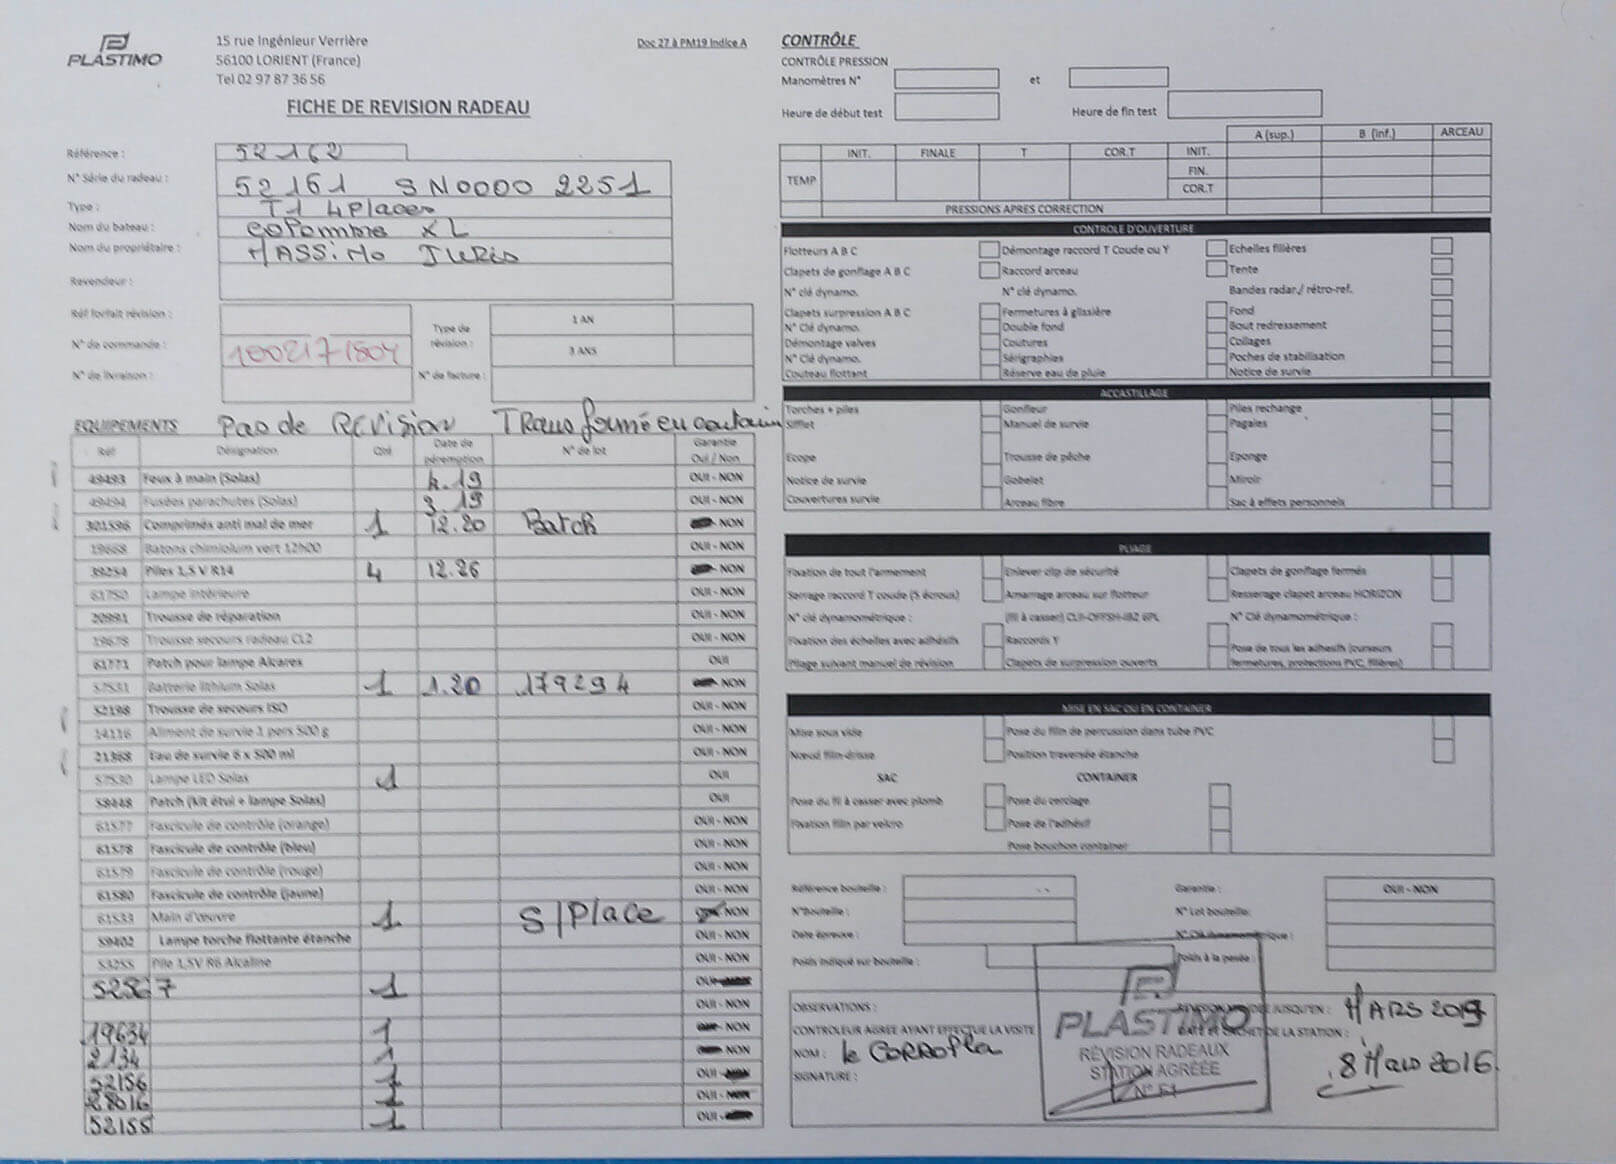 PLASTIMO
15 rue Ingénieur Verrière
56100 LORIENT (France)
Tel 02 97 87 36 56
Doc 27 à PM19 Indice A
FICHE DE REVISION RADEAU
Référence : 52162
N° Série du radeau : 52161 SN0000 2251
Type : T1 4 Places
Nom du bateau : XL
Nom du propriétaire : MASSIMO
Revendeur :
Réf forfait révision :
N° de commande : 1002171804
N° de livraison :
Type de révision :
1 AN
3 ANS
N° de facture :
EQUIPEMENTS Pas de REVISION Transformé en contain
Réf Désignation Qté Date de péremption N° de lot Garantie Oui / Non
49493 Feux à main (Solas) 4.19 OUI - NON
49494 Fusées parachutes (Solas) 3.19 OUI - NON
301596 Comprimés anti mal de mer 1 12.20 Batch NON
19668 Batons chimiolum vert 12h00 OUI - NON
39254 Piles 1,5 V R14 4 12.26 NON
61750 Lampe intérieure OUI - NON
20991 Trousse de réparation OUI - NON
19678 Trousse secours radeau CL2 OUI - NON
61771 Patch pour lampe Alcares OUI
57531 Batterie lithium Solas 1 1.20 179294 NON
52198 Trousse de secours ISO OUI - NON
14116 Aliment de survie 1 pers 500 g OUI - NON
21368 Eau de survie 6 x 500 ml OUI - NON
57530 Lampe LED Solas 1 OUI
58448 Patch (kit étui + lampe Solas) OUI
61577 Fascicule de contrôle (orange) OUI - NON
61578 Fascicule de contrôle (bleu) OUI - NON
61579 Fascicule de contrôle (rouge) OUI - NON
61580 Fascicule de contrôle (jaune) OUI - NON
61533 Main d'œuvre 1 S/Place NON
59402 Lampe torche flottante étanche OUI - NON
53255 Pile 1,5V R6 Alcaline OUI - NON
52567 1 OUI
OUI - NON
19634 1 NON
2134 1 NON
52156 1 OUI -
28016 1 OUI -
52155 1 OUI -
CONTRÔLE
CONTRÔLE PRESSION
Manomètres N° et
Heure de début test Heure de fin test
A (sup.) B (inf.) ARCEAU
INIT. FINALE T COR.T INIT.
TEMP FIN.
COR.T
PRESSIONS APRES CORRECTION
CONTROLE D'OUVERTURE
Flotteurs A B C Démontage raccord T Coude ou Y Echelles filières
Clapets de gonflage A B C Raccord arceau Tente
N° clé dynamo. N° clé dynamo. Bandes radar./ rétro-ref.
Clapets surpression A B C Fermetures à glissière Fond
N° Clé dynamo. Double fond Bout redressement
Démontage valves Coutures Collages
N° Clé dynamo. Sérigraphies Poches de stabilisation
Couteau flottant Réserve eau de pluie Notice de survie
ACCASTILLAGE
Torches + piles Gonfleur Piles rechange
Sifflet Manuel de survie Pagaies
Ecope Trousse de pêche Eponge
Notice de survie Gobelet Miroir
Couvertures survie Arceau fibre Sac à effets personnels
PLIAGE
Fixation de tout l'armement Enlever clip de sécurité Clapets de gonflage fermés
Serrage raccord T coude (5 écrous) Amarrage arceau sur flotteur Resserage clapet arceau HORIZON
N° clé dynamométrique : (fil à casser) N° Clé dynamométrique :
Fixation des échelles avec adhésifs Raccords Y Pose de tous les adhesifs (curseurs
Pliage suivant manuel de révision Clapets de surpression ouverts fermetures, protections PVC, filières)
MISE EN SAC OU EN CONTAINER
Mise sous vide Pose du filin de percussion dans tube PVC
Nœud filin-drisse Position traversée étanche
SAC CONTAINER
Pose du fil à casser avec plomb Pose du cerclage
Fixation filin par velcro Pose de l'adhésif
Pose bouchon container
Référence bouteille : Garantie : OUI - NON
N°Bouteille : N° Lot bouteille:
Date épreuve : N° Clé dynamométrique :
Poids indiqué sur bouteille : Poids à la pesée :
OBSERVATIONS :
JUSQU'EN : MARS 2019
CONTROLEUR AGREE AYANT EFFECTUE LA VISITE
DATE ET CACHET DE LA STATION :
NOM : le
8 Mars 2016
SIGNATURE :
PLASTIMO
RÉVISION RADEAUX
STATION AGRÉÉE